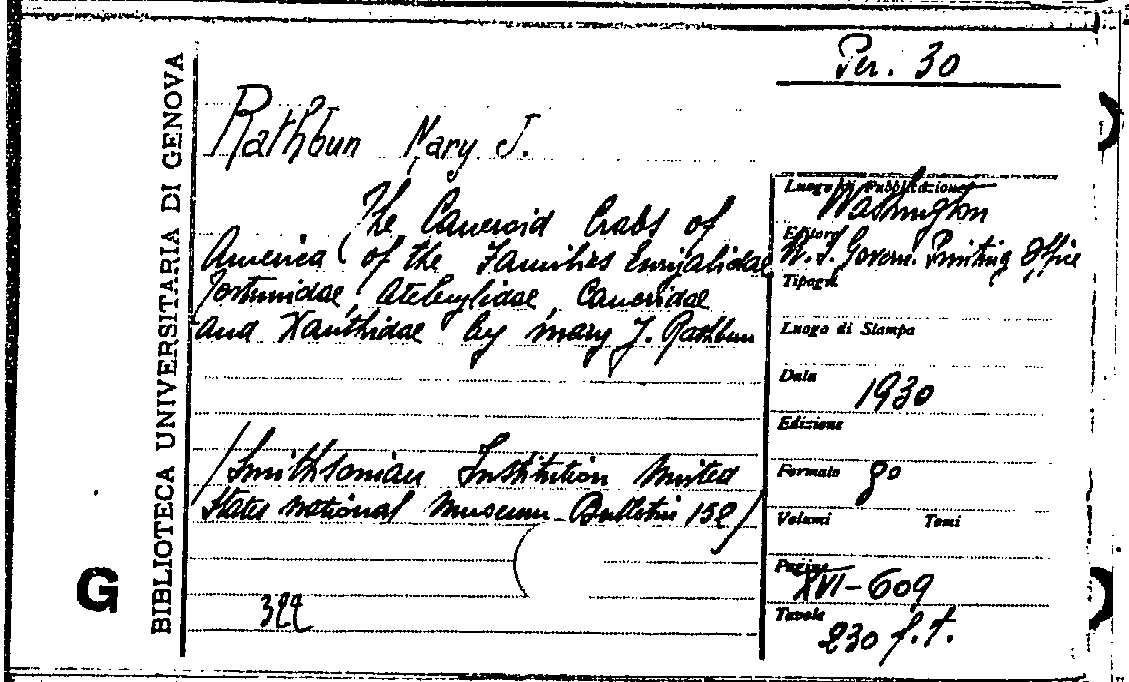 Per. 30
BIBLIOTECA UNIVERSITARIA DI GENOVA
Rathbun Mary J.
The Cancroid Crabs of
America (of the Families Euryalidae
Portunidae, Atelecylidae, Cancridae
and Xanthidae by Mary J. Rathbun
/Smithsonian Institution United
States National Museum Bulletin 152/
322
G
Luogo di Pubblicazione
Washington
Editore
U.S. Govern. Printing Office
Tipogr.
Luogo di Stampa
Data
1930
Edizione
Formato 8o
Volumi Tomi
Pagine
XVI-609
Tavole
230 f.t.